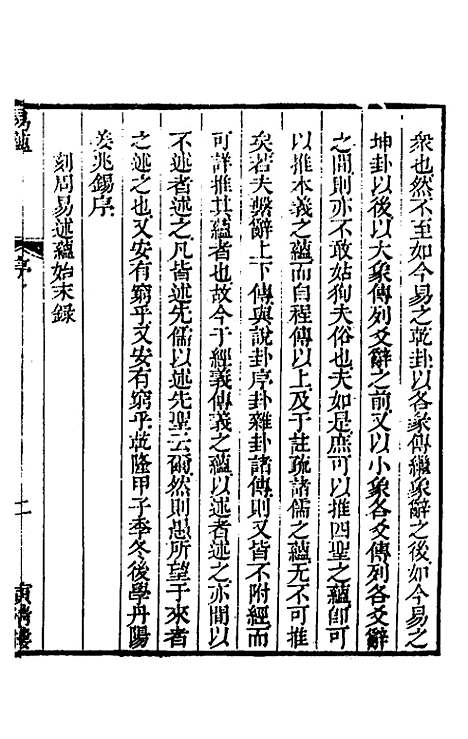 衆也然不至如今易之乾卦以各彖傳繼彖辭之後如今易之
坤卦以後以大象傳列爻辭之前又以小象各爻傳列各爻辭
之間則亦不敢姑狥夫俗也夫如是庶可以推四聖之蘊卽可
以推本義之蘊而自程傳以上及于註疏諸儒之蘊无不可推
矣若夫繫辭上下傳與說卦序卦雜卦諸傳則又皆不附經而
可詳推其蘊者也故今于經義傳義之蘊以述者述之亦間以
不述者述之凡皆述先儒以述先聖云爾然則愚所望于來者
之述之也又安有窮乎又安有窮乎乾隆甲子季冬後學丹陽
姜兆錫序
刻周易述蘊始末錄
易蘊
序
二
寅清樓